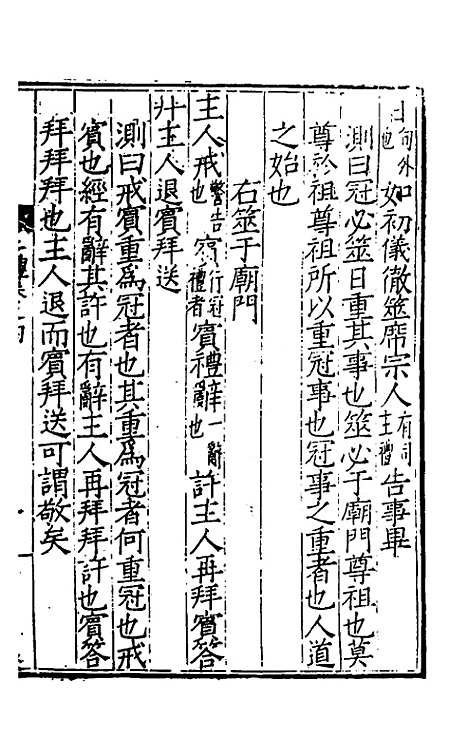 日旬外也如初儀徹筮席宗人有司主禮告事畢
測曰冠必筮日重其事也筮必于廟門尊祖也莫
尊於祖尊祖所以重冠事也冠事之重者也人道
之始也
右筮于廟門
主人戒警告也賓行冠禮者賓禮辭一辭也許主人再拜賓答
拜主人退賓拜送
測曰戒賓重為冠者也其重為冠者何重冠也戒
賓也經有辭其許也有辭主人再拜拜許也賓答
拜拜拜也主人退而賓拜送可謂敬矣